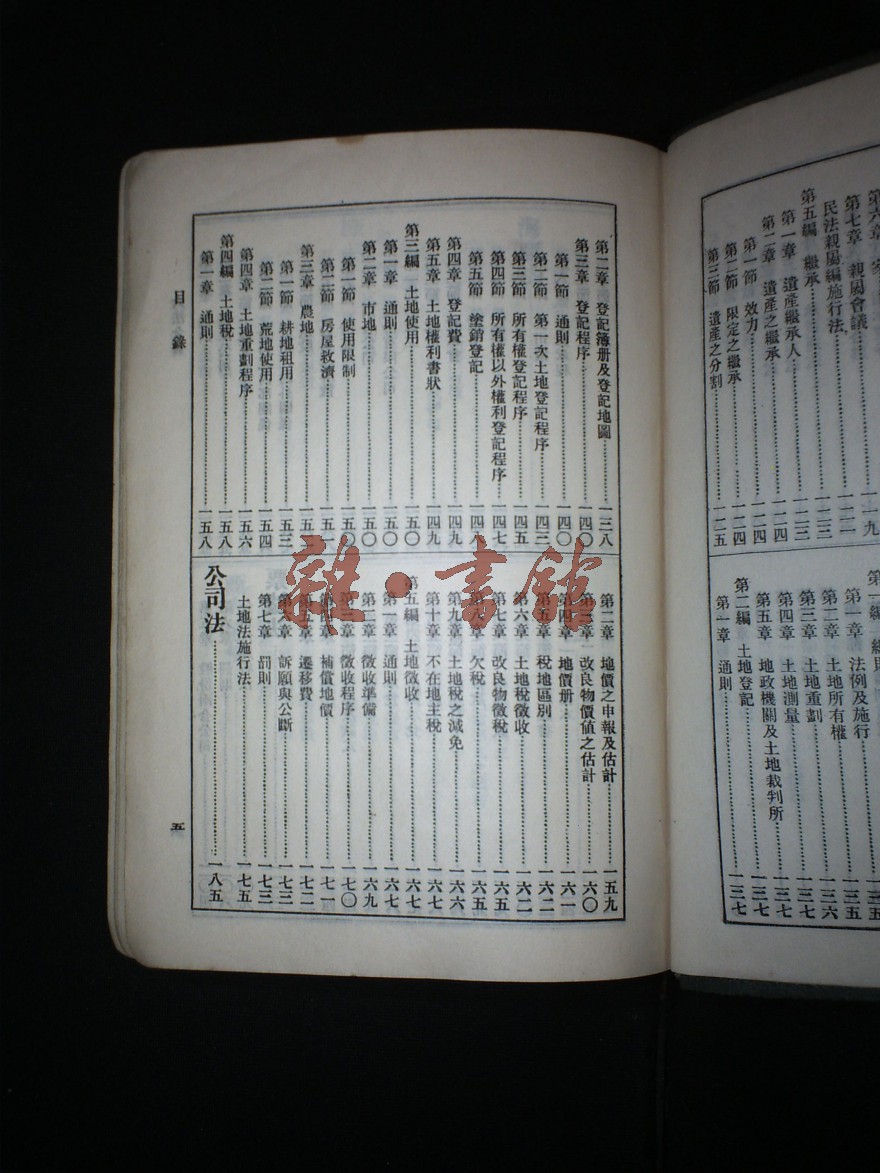 第六章
第七章 親屬會議……一二一
民法親屬編施行法……一二二
第五編 繼承……一二三
第一章 遺產繼承人……一二三
第二章 遺產之繼承……一二四
第一節 效力……一二四
第二節 限定之繼承……一二四
第三節 遺產之分割……一二五
第一編 總則
第一章 法例及施行……一三五
第二章 土地所有權……一三六
第三章 土地重劃……一三七
第四章 土地測量……一三七
第五章 地政機關及土地裁判所……一三七
第二編 土地登記……一三七
第一章 通則……一三七
第二章 登記簿册及登記地圖……一三八
第三章 登記程序……一四〇
第一節 通則……一四〇
第二節 第一次土地登記程序……一四三
第三節 所有權登記程序……一四五
第四節 所有權以外權利登記程序……一四七
第五節 塗銷登記……一四八
第四章 登記費……一四九
第五章 土地權利書狀……一四九
第三編 土地使用……一五〇
第一章 通則……一五〇
第二章 市地……一五〇
第一節 使用限制……一五〇
第二節 房屋救濟……一五一
第三章 農地……一五二
第一節 耕地租用……一五三
第二節 荒地使用……一五四
第四章 土地重劃程序……一五六
第四編 土地稅……一五八
第一章 通則……一五八
第二章 地價之申報及估計……一五九
第三章 改良物價值之估計……一六〇
第四章 地價册……一六一
第五章 稅地區別……一六二
第六章 土地稅徵收……一六二
第七章 改良物徵稅……一六五
第八章 欠稅……一六五
第九章 土地稅之減免……一六六
第十章 不在地主稅……一六七
第五編 土地徵收……一六七
第一章 通則……一六七
第二章 徵收準備……一六九
第三章 徵收程序……一七〇
第四章 補償地價……一七一
第五章 遷移費……一七二
第六章 訴願與公斷……一七三
第七章 罰則……一七三
土地法施行法……一七五
公司法……一八五
目錄
五
雜·書館